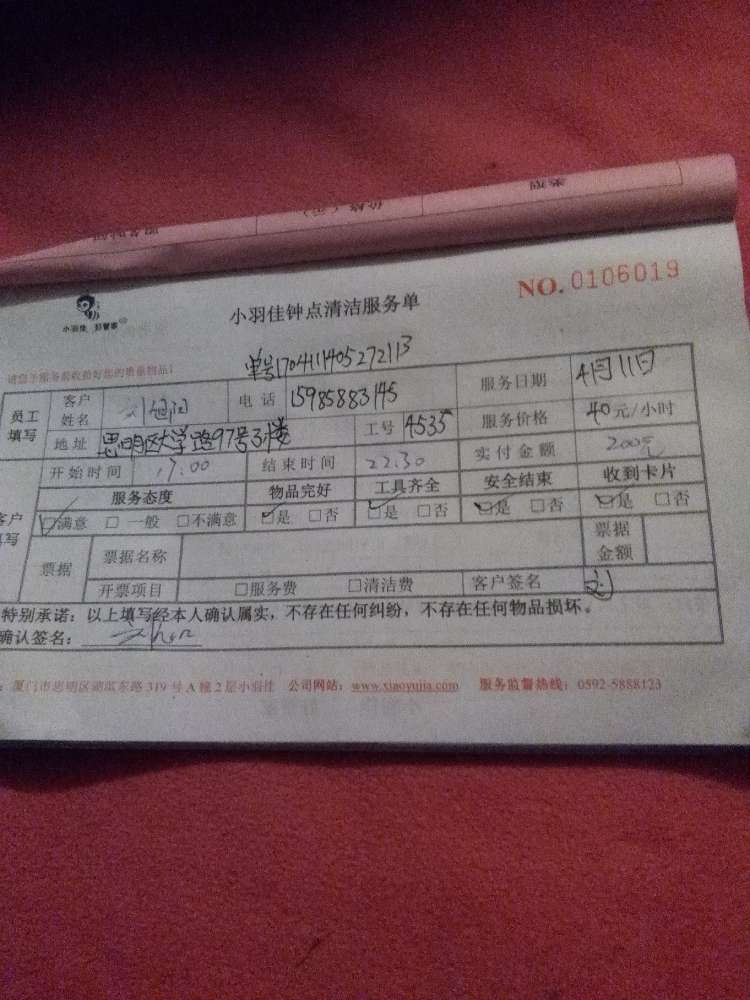 价格（元）
小羽佳 好管家
小羽佳钟点清洁服务单
NO. 0106019
请您于服务前收拾好您的贵重物品！
单号170411405272113
员工填写 客户姓名 电话 15985883145 服务日期 4月11日
地址 思明区大学路97号3楼 工号 4535 服务价格 40元/小时
开始时间 17:00 结束时间 22:30 实付金额 200元
客户填写 服务态度 物品完好 工具齐全 安全结束 收到卡片
☑满意 □一般 □不满意 ☑是 □否 ☑是 □否 ☑是 □否 ☑是 □否
票据 票据名称 票据金额
开票项目 □服务费 □清洁费 客户签名 刘
特别承诺：以上填写经本人确认属实，不存在任何纠纷，不存在任何物品损坏。
确认签名：
：厦门市思明区湖滨东路319号A幢2层小羽佳 公司网站：www.xiaoyujia.com 服务监督热线：0592-5888123